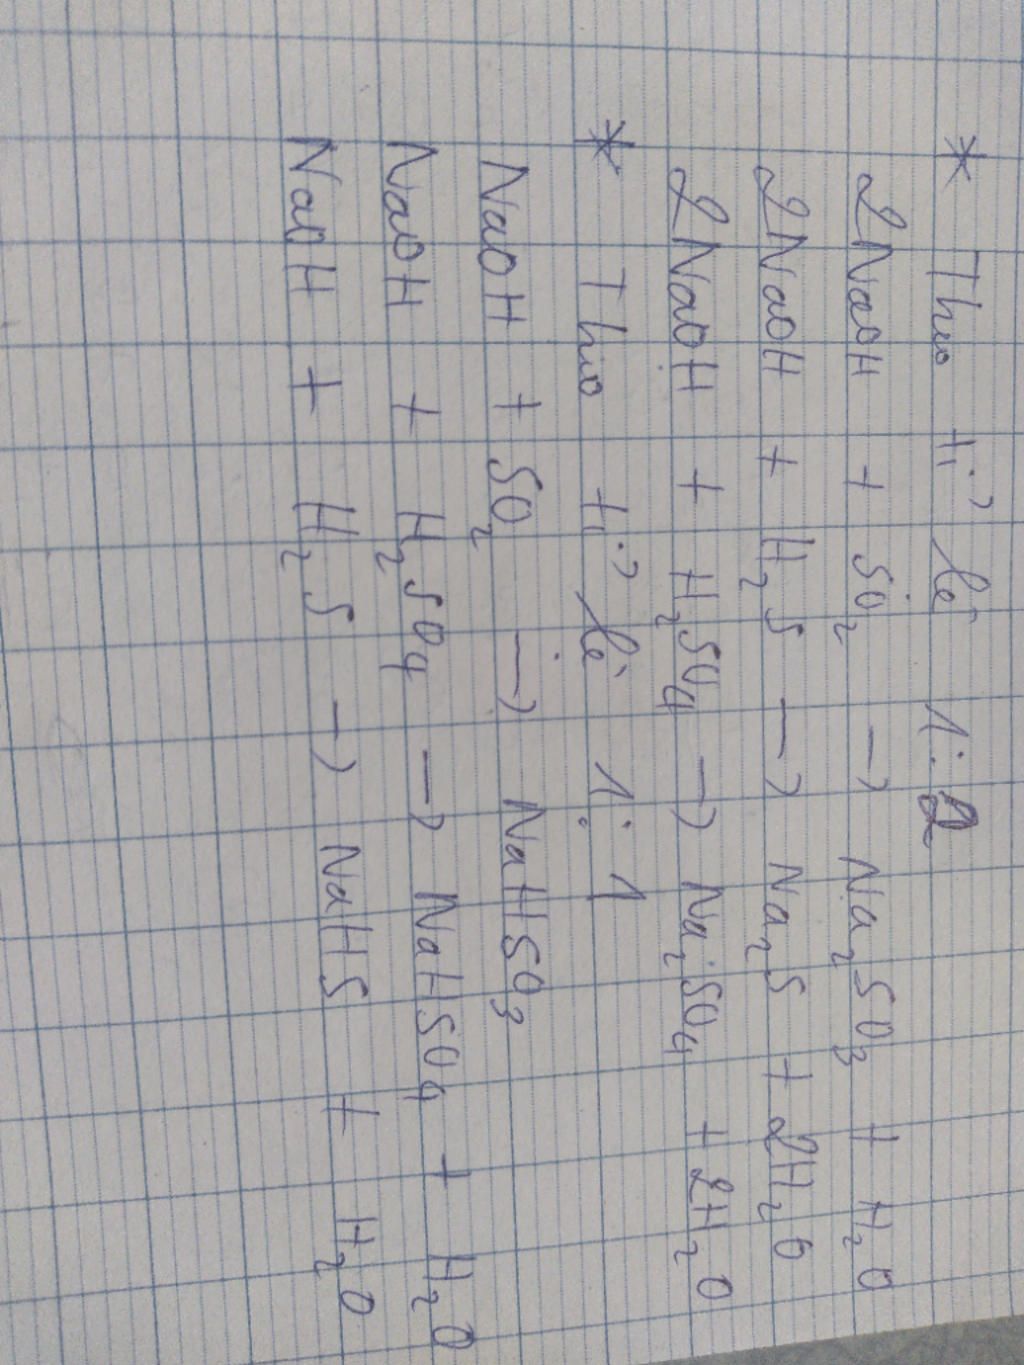 * Theo tỉ lệ 1:2
2NaOH + SO₂ → Na₂SO₃ + H₂O
2NaOH + H₂S → Na₂S + 2H₂O
2NaOH + H₂SO₄ → Na₂SO₄ + 2H₂O
* Theo tỉ lệ 1:1
NaOH + SO₂ → NaHSO₃
NaOH + H₂SO₄ → NaHSO₄ + H₂O
NaOH + H₂S → NaHS + H₂O